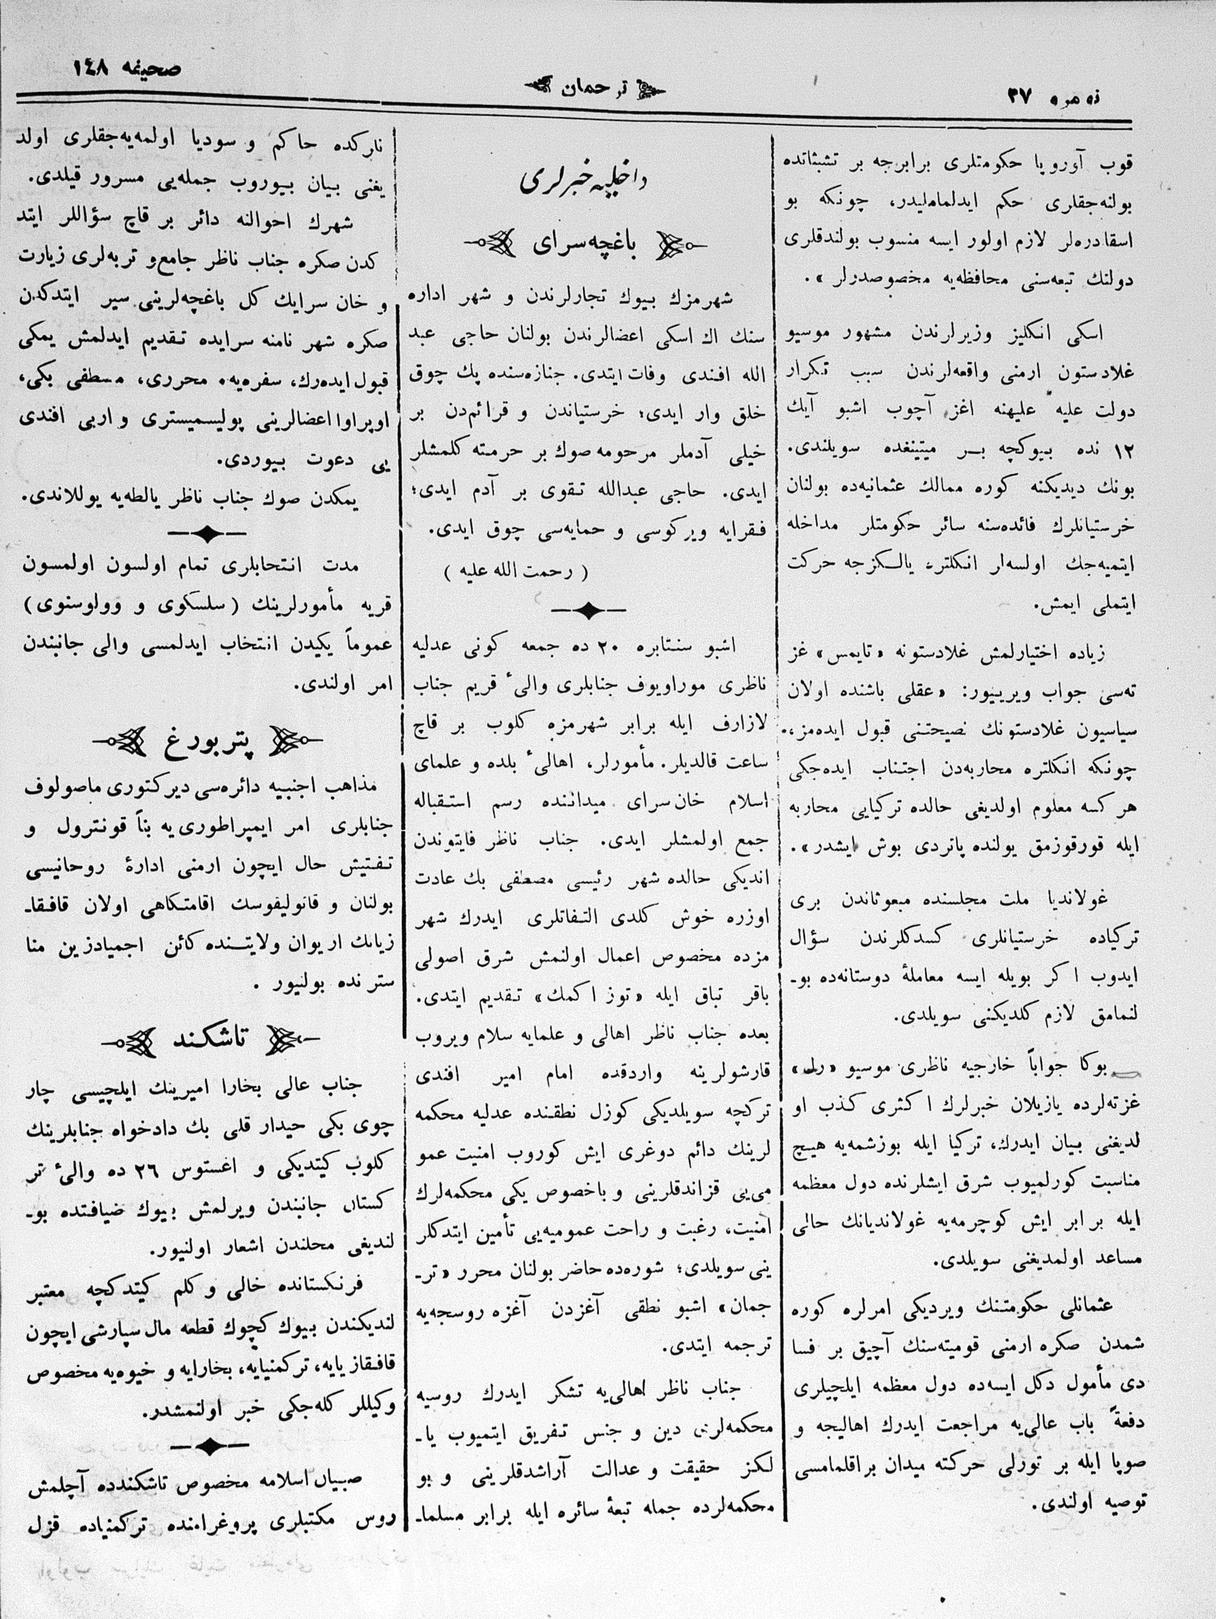 نومرو ٣٧
ترجمان
صحیفه ١٤٨
قوب آوروپا حکومتلری برابرجه بر تشبثاتده
بولنه‌جقلری حکم ایدلمامالیدر، چونکه بو
اسقادره‌لر لازم اولور ایسه منسوب بولندقلری
دولتك تبعه‌سنی محافظه‌یه مخصوصدرلر».
اسکی انکلیز وزیرلرندن مشهور موسیو
غلادستون ارمنی واقعه‌لرندن سبب تکرار
دولت علیه علیهنه اغز آچوب اشبو آیك
١٢ نده بیوکچه بر میتینغده سویلندی.
بونك دیدیکنه کوره ممالك عثمانیه‌ده بولنان
خرستیانلرك فائده‌سنه سائر حکومتلر مداخله
ایتمیه‌جك اولسه‌لر انکلتره یالکزجه حرکت
ایتملی ایمش.
زیاده اختیارلمش غلادستونه «تایمس» غز
ته‌سی جواب ویرییور: «عقلی باشنده اولان
سیاسیون غلادستونك نصیحتنی قبول ایده‌مز،
چونکه انکلتره محاربه‌دن اجتناب ایده‌جکی
هر کسه معلوم اولدیغی حالده ترکیایی محاربه
ایله قورقوزمق یولنده پاتردی بوش ایشدر».
غولاندیا ملت مجلسنده مبعوثاندن بری
ترکیاده خرستیانلری کسدکلرندن سؤال
ایدوب اکر بویله ایسه معاملهٔ دوستانه‌ده بو-
لنمامق لازم کلدیکنی سویلدی.
بوکا جواباً خارجیه ناظری موسیو «رل»
غزته‌لرده یازیلان خبرلرك اکثری کذب او
لدیغنی بیان ایدرك، ترکیا ایله بوزشمه‌یه هیچ
مناسبت کورلمیوب شرق ایشلرنده دول معظمه
ایله برابر ایش کوچرمه‌یه غولاندیانك حالی
مساعد اولمدیغنی سویلدی.
عثمانلی حکومتنك ویردیکی امرلره کوره
شمدن صکره ارمنی قومیته‌سنك آچیق بر فسا
دی مأمول دکل ایسه‌ده دول معظمه ایلچیلری
دفعةً باب عالی‌یه مراجعت ایدرك اهالیجه و
صوپا ایله بر تورلی حرکته میدان براقلمامسی
توصیه اولندی.
داخلیه خبرلری
باغچه‌سرای
شهرمزك بیوك تجارلرندن و شهر اداره
سنك اك اسکی اعضالرندن بولنان حاجی عبد
الله افندی وفات ایتدی. جنازه‌سنده پك چوق
خلق وار ایدی؛ خرستیاندن و قرائم‌دن بر
خیلی آدملر مرحومه صوك بر حرمته کلمشلر
ایدی. حاجی عبدالله تقوی بر آدم ایدی؛
فقرایه ویرکوسی و حمایه‌سی چوق ایدی.
(رحمت الله علیه)
اشبو سنتابره ٢٠ ده جمعه کونی عدلیه
ناظری موراویوف جنابلری والیٔ قریم جناب
لازارف ایله برابر شهرمزه کلوب بر قاچ
ساعت قالدیلر. مأمورلر، اهالیٔ بلده و علمای
اسلام خان‌سرای میداننده رسم استقباله
جمع اولمشلر ایدی. جناب ناظر فایتوندن
اندیکی حالده شهر رئیسی مصطفی بك عادت
اوزره خوش کلدی التفاتلری ایدرك شهر
مزده مخصوص اعمال اولنمش شرق اصولی
باقر تباق ایله «توز اکمك» تقدیم ایتدی.
بعده جناب ناظر اهالی و علمایه سلام ویروب
قارشولرینه واردقده امام امیر افندی
ترکچه سویلدیکی کوزل نطقنده عدلیه محکمه
لرینك دائم دوغری ایش کوروب امنیت عمو
می‌یی قزاندقلرینی و باخصوص یکی محکمه‌لرك
امنیت، رغبت و راحت عمومیه‌یی تأمین ایتدکلر
ینی سویلدی؛ شوره‌ده حاضر بولنان محرر «تر-
جمان» اشبو نطقی آغزدن آغزه روسجه‌یه
ترجمه ایتدی.
جناب ناظر اهالی‌یه تشکر ایدرك روسیه
محکمه‌لری دین و جنس تفریق ایتمیوب یا-
لکز حقیقت و عدالت آراشدقلرینی و بو
محکمه‌لرده جمله تبعهٔ سائره ایله برابر مسلما-
نارکده حاکم و سودیا اولمه‌یه‌جقلری اولد
یغنی بیان بیوروب جمله‌یی مسرور قیلدی.
شهرك احوالنه دائر بر قاچ سؤاللر ایتد
کدن صکره جناب ناظر جامع و تربه‌لری زیارت
و خان سرایك کل باغچه‌لرینی سیر ایتدکدن
صکره شهر نامنه سرایده تقدیم ایدلمش یمکی
قبول ایده‌رك، سفره‌یه، محرری، مسطفی بکی،
اوپراوا اعضالرینی پولیسمیستری و اربی افندی
یی دعوت بیوردی.
یمکدن صوك جناب ناظر یالطه‌یه یوللاندی.
مدت انتخابلری تمام اولسون اولمسون
قریه مأمورلرینك (سلسکوی و وولوسنوی)
عموماً یکیدن انتخاب ایدلمسی والی جانبندن
امر اولندی.
پتربورغ
مذاهب اجنبیه دائره‌سی دیرکتوری ماصولوف
جنابلری امر ایمپراطوری‌یه بناً قونترول و
تفتیش حال ایچون ارمنی ادارهٔ روحانیسی
بولنان و قاتولیقوسك اقامتکاهی اولان قافقا-
زیانك اریوان ولایتنده کائن اجمیادزین منا
سترنده بولنیور.
تاشکند
جناب عالی بخارا امیرینك ایلچیسی چار
چوی بکی حیدار قلی بك دادخواه جنابلرینك
کلوب کیتدیکی و اغستوس ٢٦ ده والیٔ تر
کستان جانبندن ویرلمش بیوك ضیافتده بو-
لندیغی محلندن اشعار اولنیور.
فرنکستانده خالی و کلم کیتدکچه معتبر
لندیکندن بیوك کچوك قطعه مال سپارشی ایچون
قافقازیایه، ترکمنیایه، بخارایه و خیوه‌یه مخصوص
وکیللر کله‌جکی خبر اولنمشدر.
صبیان اسلامه مخصوص تاشکندده آچلمش
روس مکتبلری پروغرامنده ترکمنیاده قزل